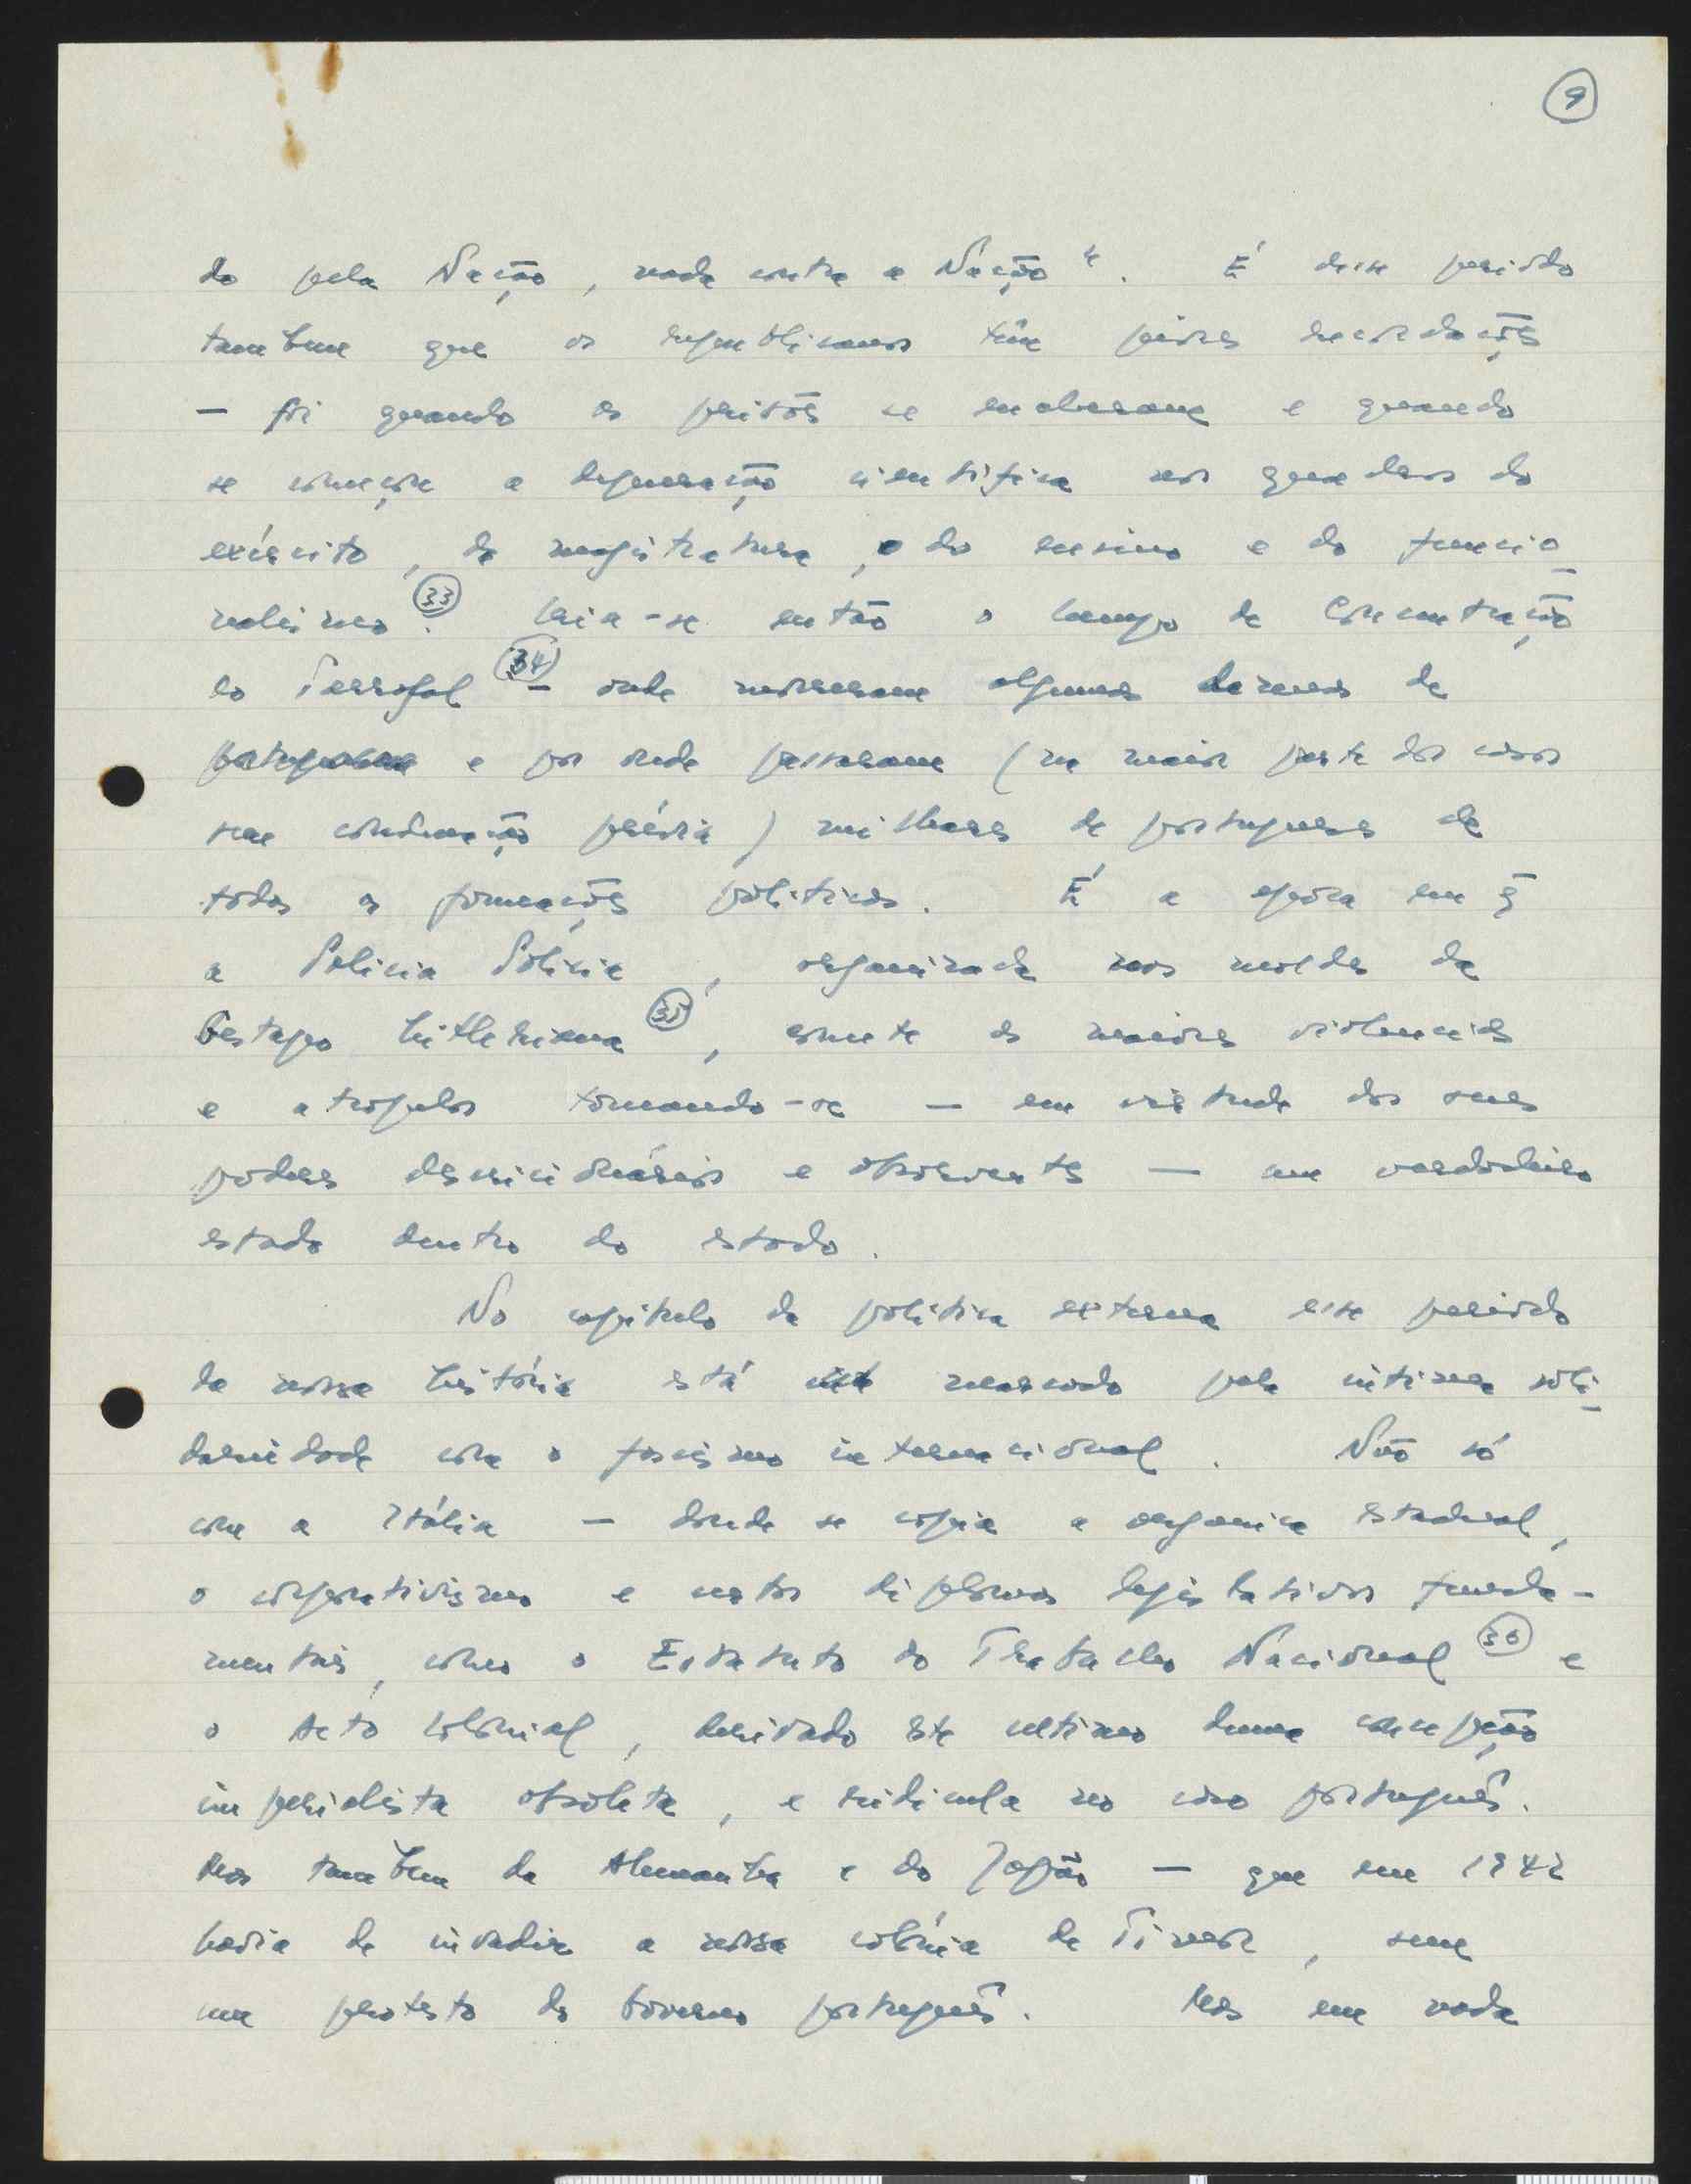 9
do pela Nação, nada contra a Nação". É desse período
tambem que os republicanos têm piores recordações
— foi quando as prisões se encheram e quando
se começou a depuração cientifica nos quadros do
exército, da magistratura, do ensino e do funcio-
nalismo (33). Cria-se então o Campo de Concentração
do Tarrafal (34) — onde morreram algumas dezenas de
portugueses e por onde passaram (na maior parte dos casos
sem condenação prévia) milhares de portugueses de
todas as formações politicas. É a época em q̃
a Policia Politica, organizada nos moldes da
Gestapo hitleriana (35), comete as maiores violencias
e atropelos tornando-se — em virtude dos seus
poderes descricionários e absorventes — um verdadeiro
estado dentro do estado.
No capitulo da politica externa esse periodo
da nossa história está marcado pela intima soli-
dariedade com o fascismo internacional. Não só
com a Itália — donde se copia a organica estadual,
o corporativismo e certos diplomas legislativos funda-
mentais, como o Estatuto do Trabalho Nacional (36) e
o Acto Colonial, derivado este ultimo duma concepção
imperialista obsoleta, e ridicula no caso português.
Mas tambem da Alemanha e do Japão — que em 1942
havia de invadir a nossa colónia de Timor, sem
um protesto do Governo português. Mas em nada